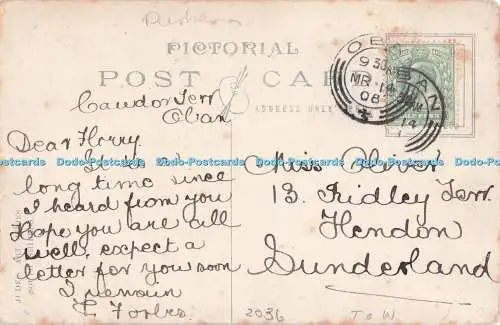 Durham
PICTORIAL
POST CARD
ADDRESS ONLY
OBAN
9 30
MR 14
08
Cawdor Terr
Oban
Dear Florry
It is a
long time since
I heard from you
Hope you are all
well, expect a
letter for you soon
I remain
F Forbes
Miss Oliver
13. Ridley Terr.
Hendon
Sunderland
2036
T o W
Dodo-Postcards Dodo-Postcards Dodo-Postcards Dodo-Postcards Dodo-Postcards